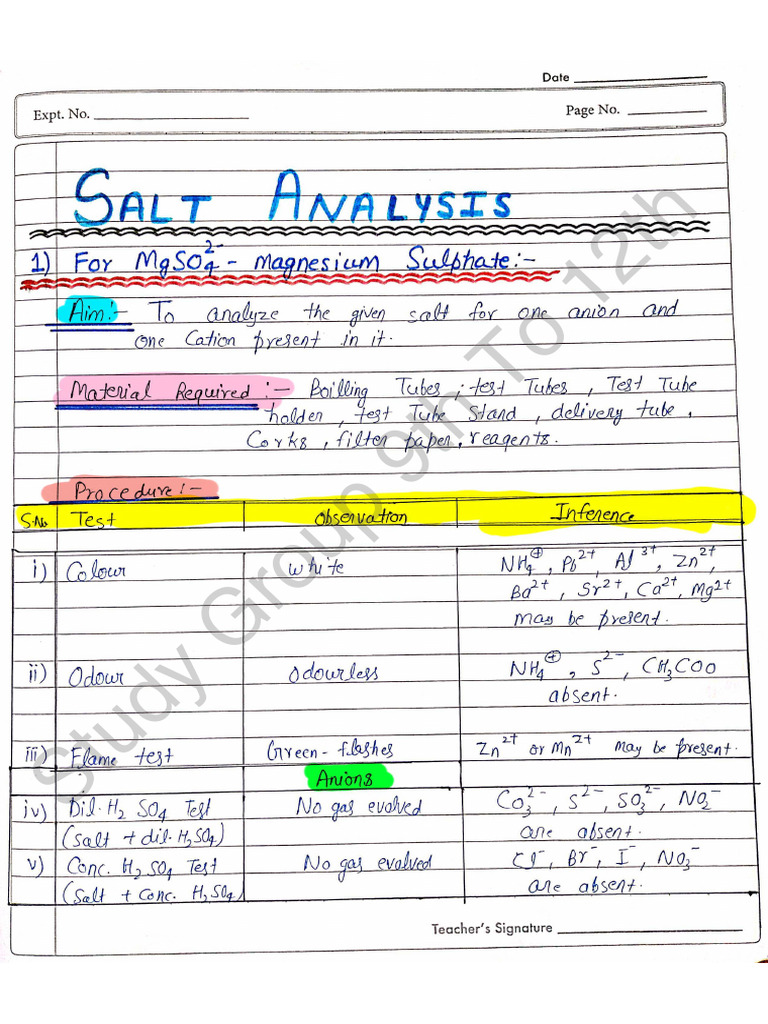 Date
Expt. No.
Page No.
SALT ANALYSIS
1) For MgSO₄²⁻ - Magnesium Sulphate:-
Aim:- To analyze the given salt for one anion and
one Cation present in it.
Material Required:- Boilling Tubes, test Tubes, Test Tube
holder, test Tube Stand, delivery tube,
Corks, filter paper, reagents.
Procedure:-
S.No Test Observation Inference
i) Colour white NH₄⊕, Pb²⁺, Al³⁺, Zn²⁺,
Ba²⁺, Sr²⁺, Ca²⁺, Mg2+
may be present.
ii) Odour Odourless NH₄⊕, S²⁻, CH₃COO
absent.
iii) Flame test Green-flashes Zn²⁺ or Mn²⁺ may be present.
Anions
iv) Dil. H₂SO₄ Test No gas evolved CO₃²⁻, S²⁻, SO₃²⁻, NO₂⁻
(Salt + dil. H₂SO₄) are absent.
v) Conc. H₂SO₄ Test No gas evolved Cl⁻, Br⁻, I⁻, NO₃⁻
(Salt + Conc. H₂SO₄) are absent.
Teacher's Signature
Study Group 9th To 12th